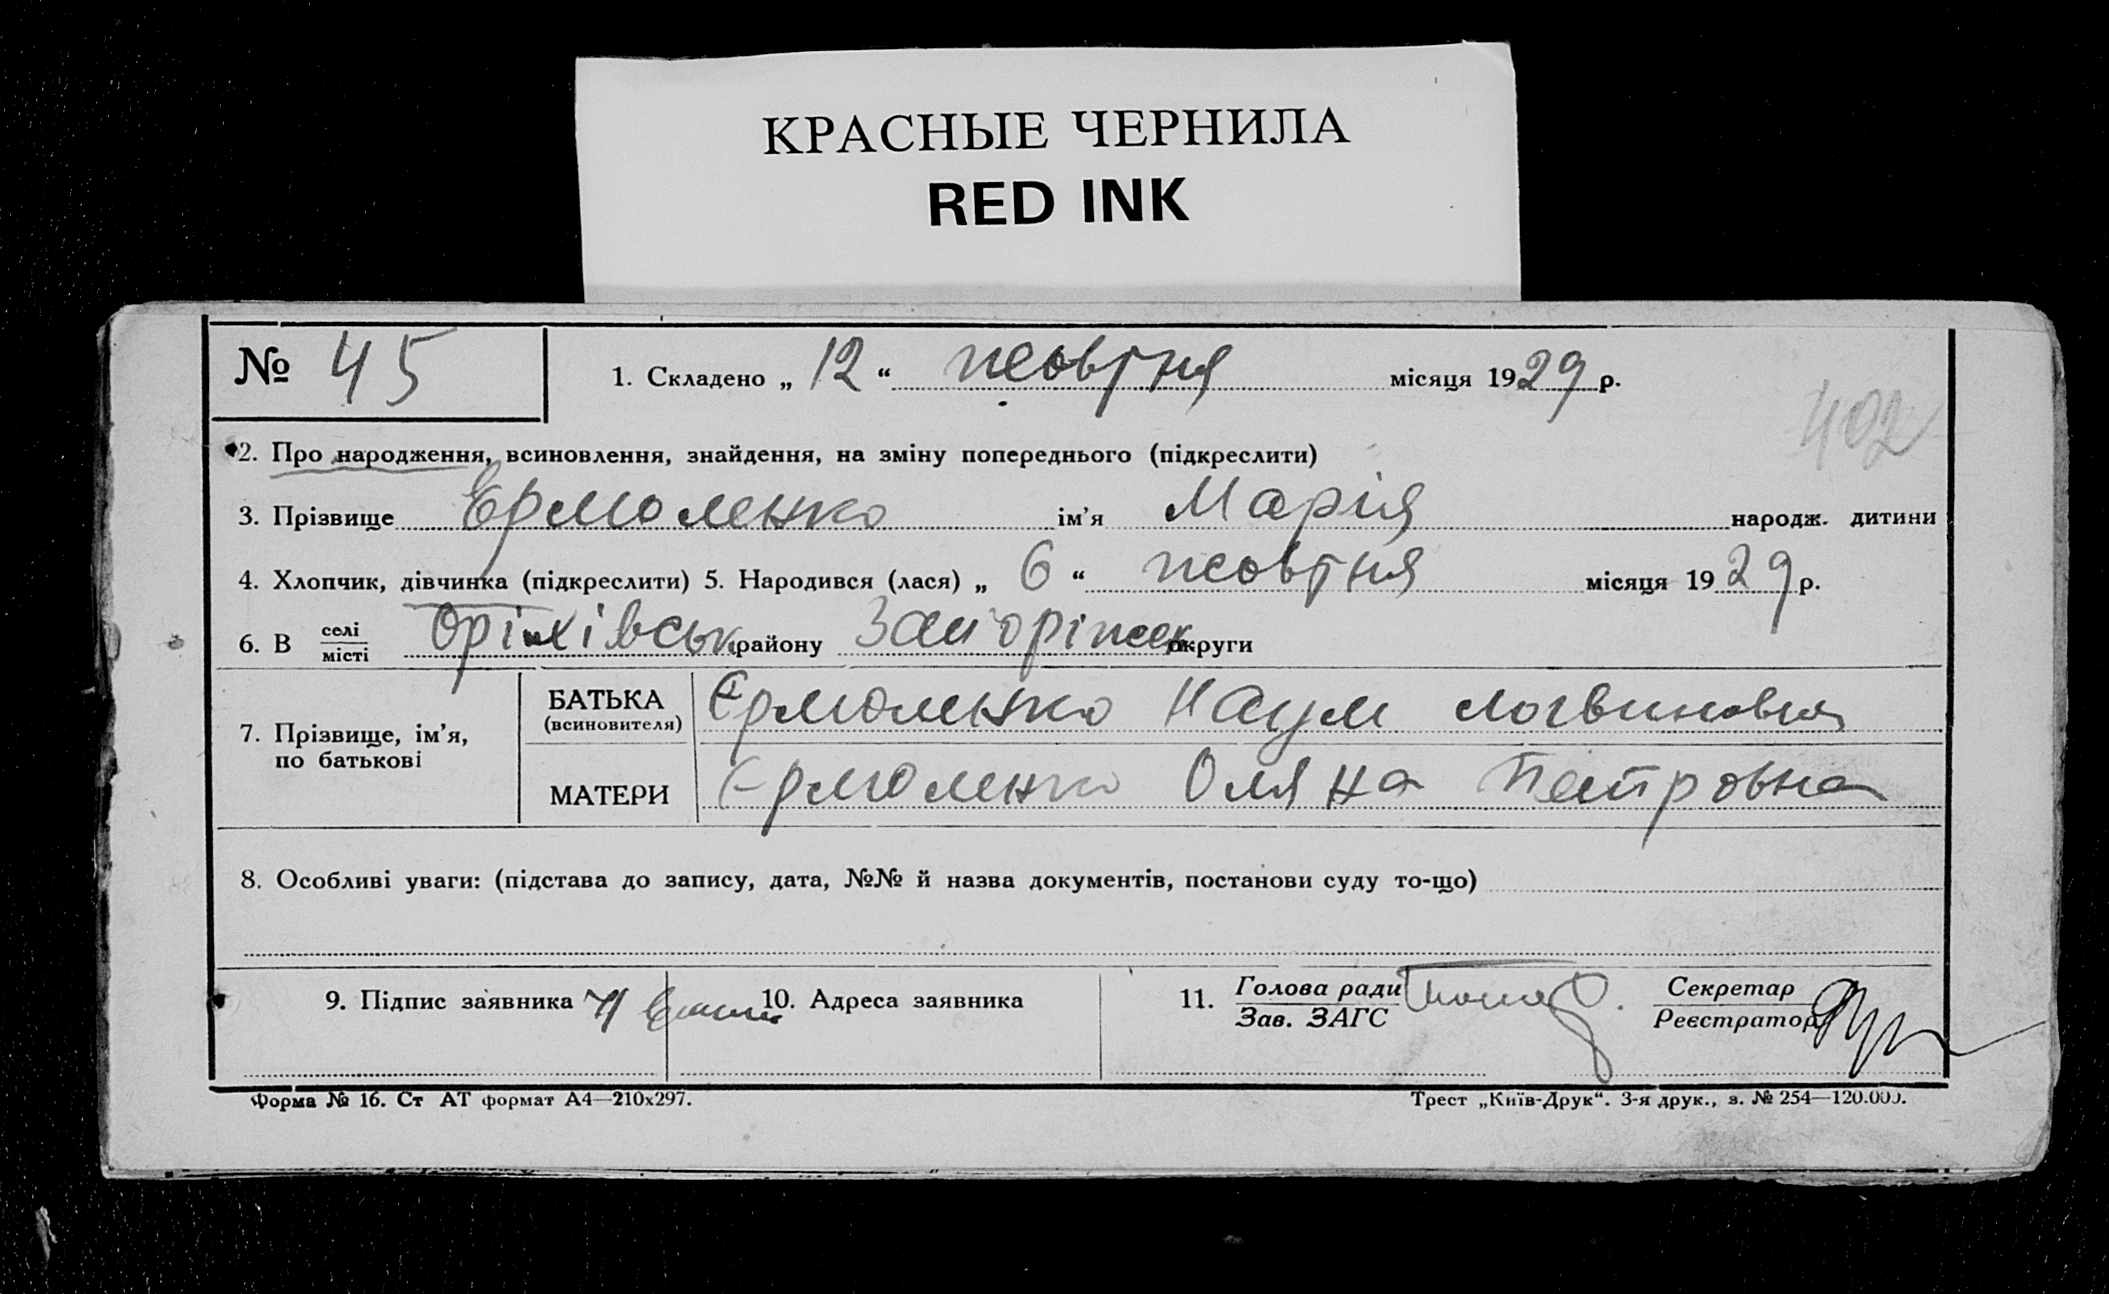 КРАСНЫЕ ЧЕРНИЛА
RED INK
№ 45 1. Складено „ 12 “ жовтня місяця 1929 р.
402
2. Про народження, всиновлення, знайдення, на зміну попереднього (підкреслити)
3. Прізвище Єрмоленко ім’я Марія народж. дитини
4. Хлопчик, дівчинка (підкреслити) 5. Народився (лася) „ 6 “ жовтня місяця 1929 р.
6. В селі / місті Оріхівськ району Запоріжск округи
7. Прізвище, ім’я, по батькові
БАТЬКА (всиновителя) Єрмоленко Наум Логвинович
МАТЕРИ Єрмоленко Оляна Петровна
8. Особливі уваги: (підстава до запису, дата, №№ й назва документів, постанови суду то-що)
9. Підпис заявника 10. Адреса заявника 11. Голова ради / Зав. ЗАГС Секретар / Реєстратор
Форма № 16. Ст АТ формат А4—210х297. Трест „Київ-Друк“. 3-я друк., з. № 254—120.000.